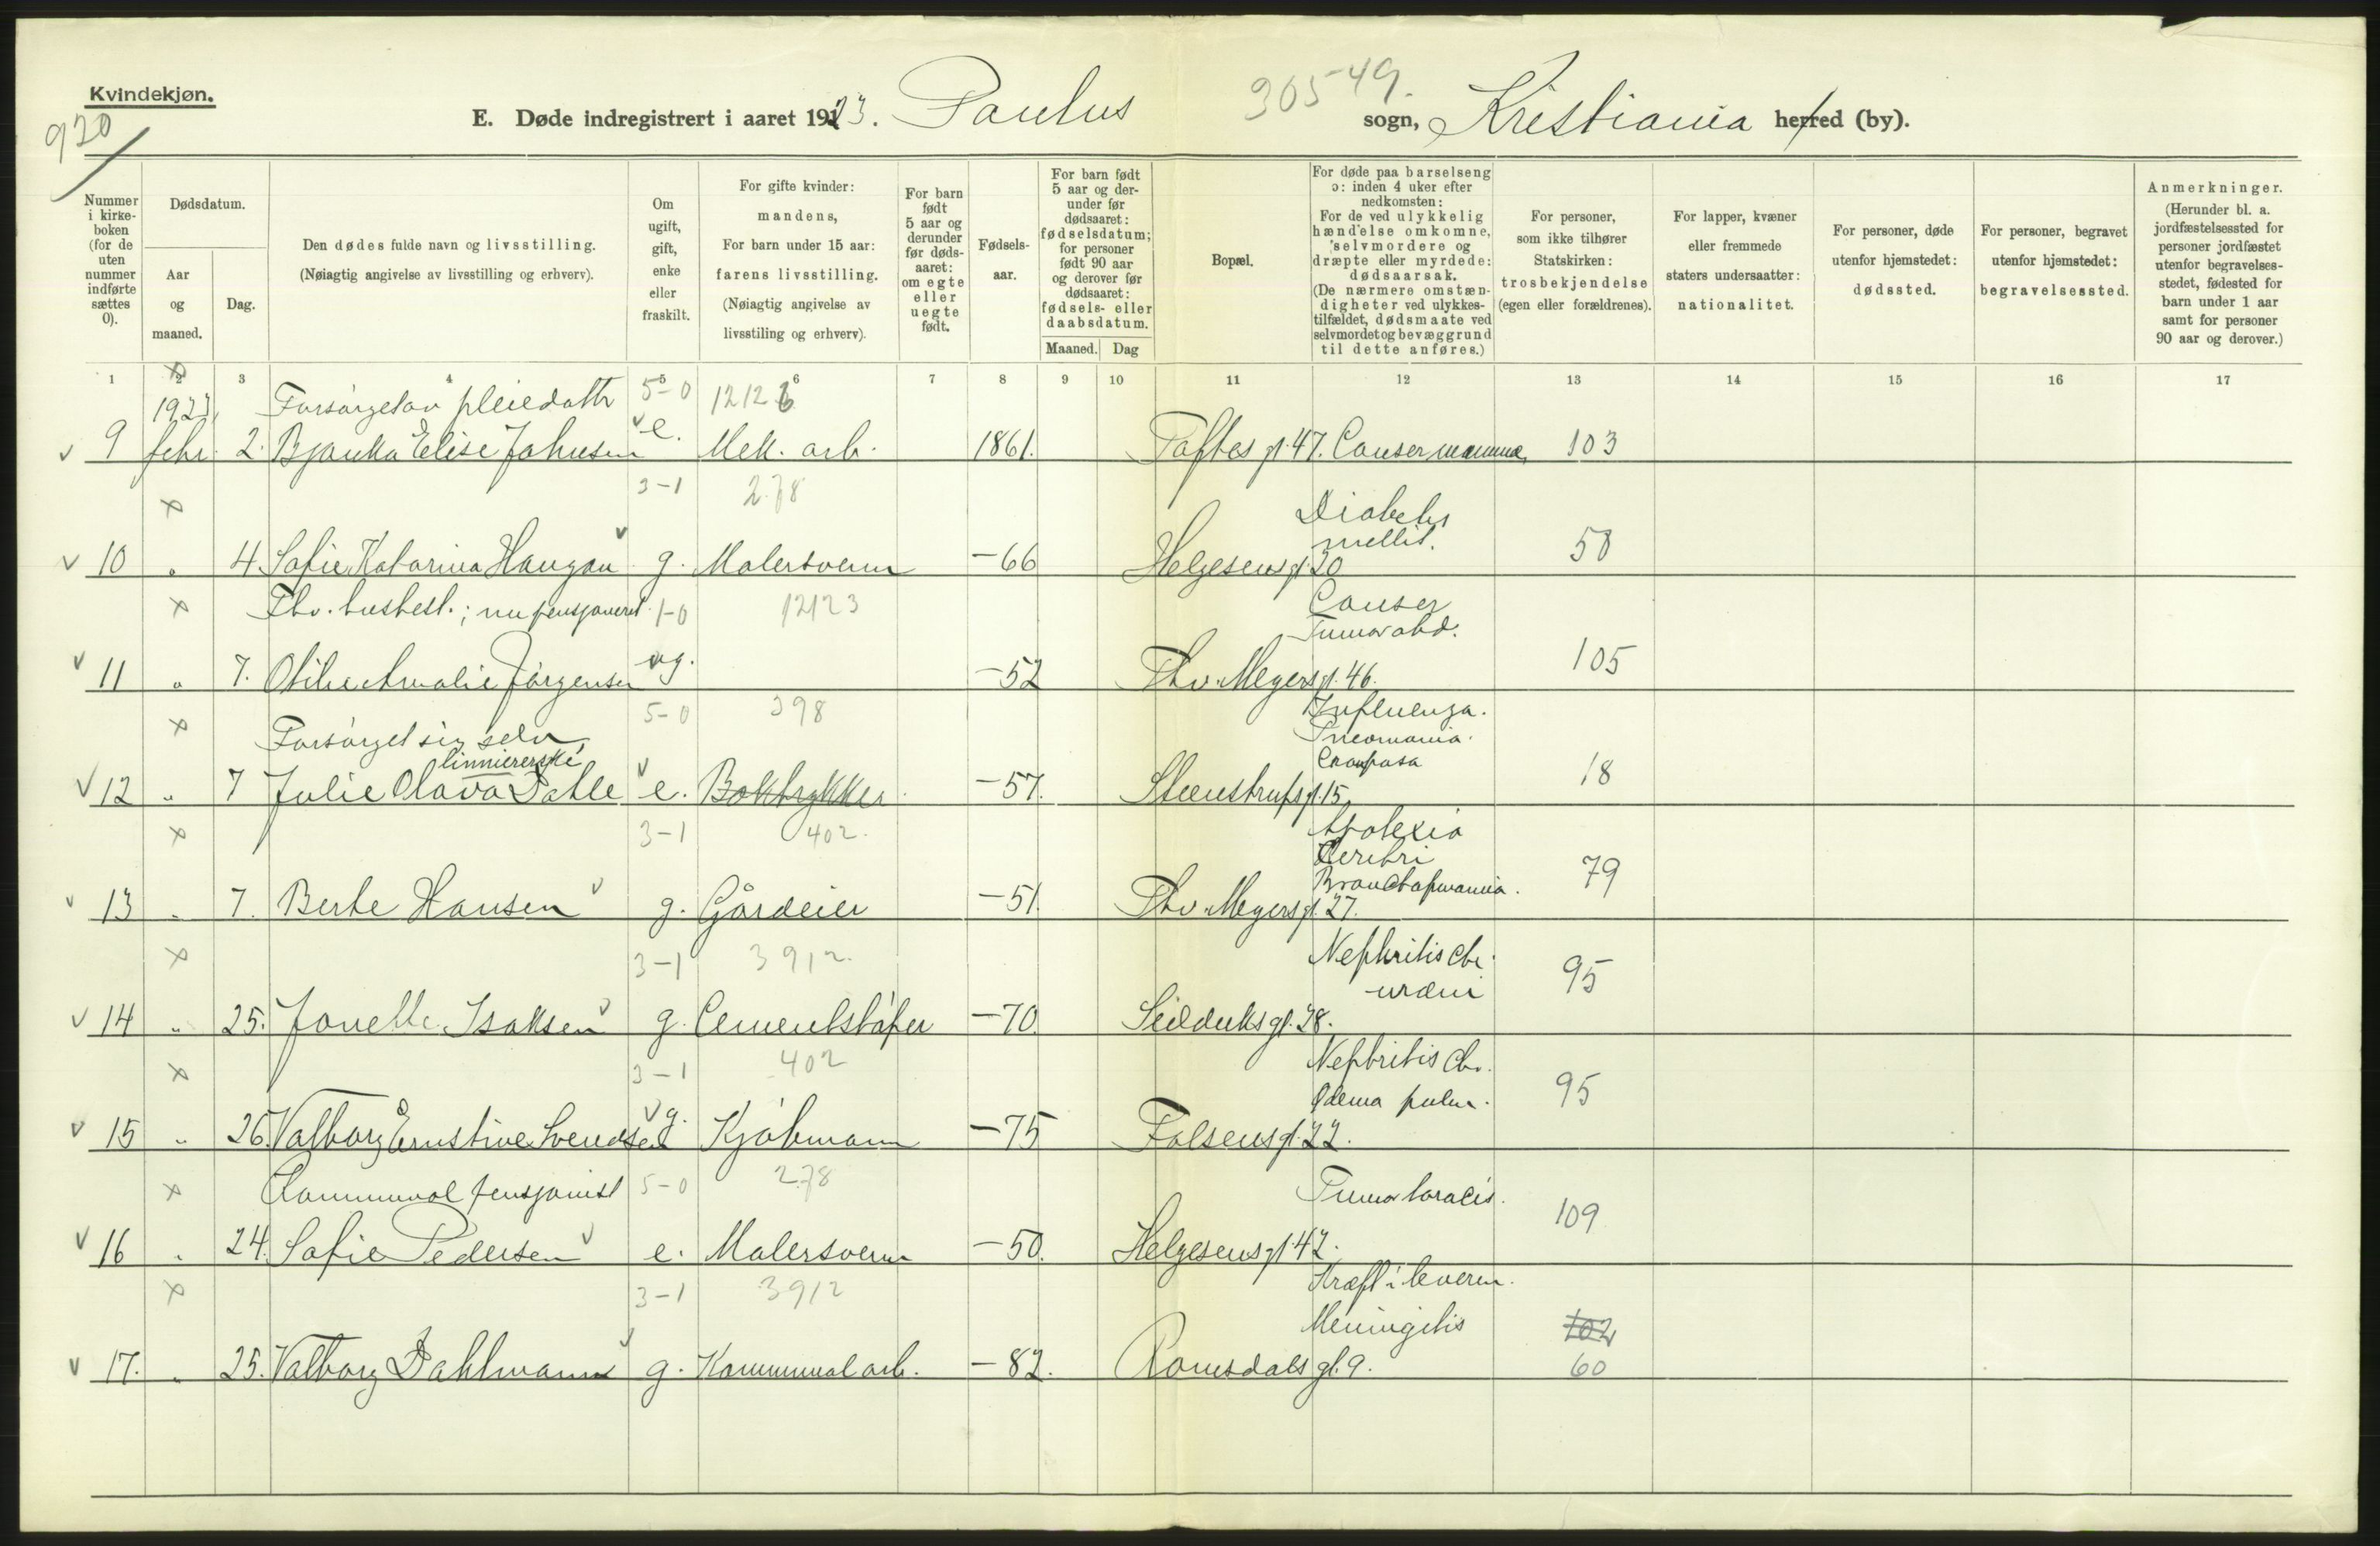 Kvindekjøn.
920
E. Døde indregistrert i aaret 1923. Paulus sogn, Kristiania herred (by).
30549.
Nummer i kirkeboken (for de uten nummer indførte sættes 0).
Dødsdatum.
Aar og maaned.
Dag.
Den dødes fulde navn og livsstilling.
(Nøiagtig angivelse av livsstilling og erhverv).
Om ugift, gift, enke eller fraskilt.
For gifte kvinder: mandens,
For barn under 15 aar: farens livsstilling.
(Nøiagtig angivelse av livsstiling og erhverv).
For barn født 5 aar og derunder før dødsaaret: om egte eller uegte født.
Fødselsaar.
For barn født 5 aar og derunder før dødsaaret: fødselsdatum; for personer født 90 aar og derover før dødsaaret: fødsels- eller daabsdatum.
Maaned. Dag
Bopæl.
For døde paa barselseng ɔ: inden 4 uker efter nedkomsten:
For de ved ulykkelig hændelse omkomne, selvmordere og dræpte eller myrdede: dødsaarsak.
(De nærmere omstændigheter ved ulykkestilfældet, dødsmaate ved selvmordet og bevæggrund til dette anføres.)
For personer, som ikke tilhører Statskirken: trosbekjendelse (egen eller forældrenes).
For lapper, kvæner eller fremmede staters undersaatter: nationalitet.
For personer, døde utenfor hjemstedet: dødssted.
For personer, begravet utenfor hjemstedet: begravelsessted.
Anmerkninger.
(Herunder bl. a. jordfæstelsessted for personer jordfæstet utenfor begravelsesstedet, fødested for barn under 1 aar samt for personer 90 aar og derover.)
1 2 3 4 5 6 7 8 9 10 11 12 13 14 15 16 17
1923 Forsørget av pleiedattr 5-0 12126
9 febr. 2. Bjanka Elise Johnsen e. Mek. arb. 1861. Toftes gt. 47. Cancer mamma 103
3-1 278 Diabetes
mellit. 58
10 " 4 Sofie Katarina Haugan g. Malersvenn -66 Helgesens gt. 20
Fhv. husbest.; nu pensjonert. 1-0 12123 Cancer
Tumor abd. 105
11 " 7. Otilie Amalie Jørgensen ug. -52 Thv. Meyers gt. 46.
Forsørget sig selv 5-0 398 Influenza.
Pneomonia
linniererske Crouposa 18
12 " 7 Julie Olava Dahle e. Boktrykker -57. Steenstrups gt. 15
3-1 402. Apolexia
Cerebri
Bronchopnmonia. 79
13 " 7. Berte Hansen g. Gårdeier -51. Thv. Meyers gt. 27.
3-1 3912. Nephritis chr.
uræmi 95
14 " 25. Jonette Isaksen g. Cementstøper -70. Seilduks gt. 28.
3-1 402 Nephritis chr.
Ødema pulm. 95
15 " 26. Valborg Ernstine Svendsen g. Kjøbmann -75 Falsens gt. 22.
Kommunal pensjonist 5-0 278 Tumor toracis. 109
16 " 24. Sofie Pedersen e. Malersvenn -50. Helgesens gt. 42.
3-1 3912 Kræft i leveren.
Meningitis 102
17. " 25. Valborg Dahlmann g. Kommunal arb. -82. Romsdals gt. 9. 60